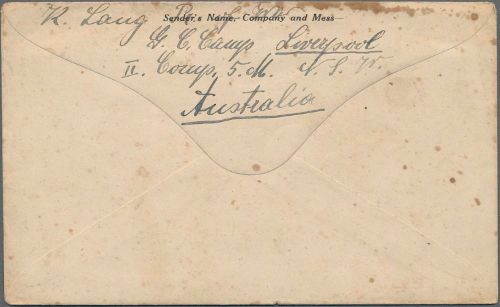 K. Lang
Sender's Name, Company and Mess—
G. C. Camp Liverpool
II. Comp, 5. M. N. S. W.
Australia